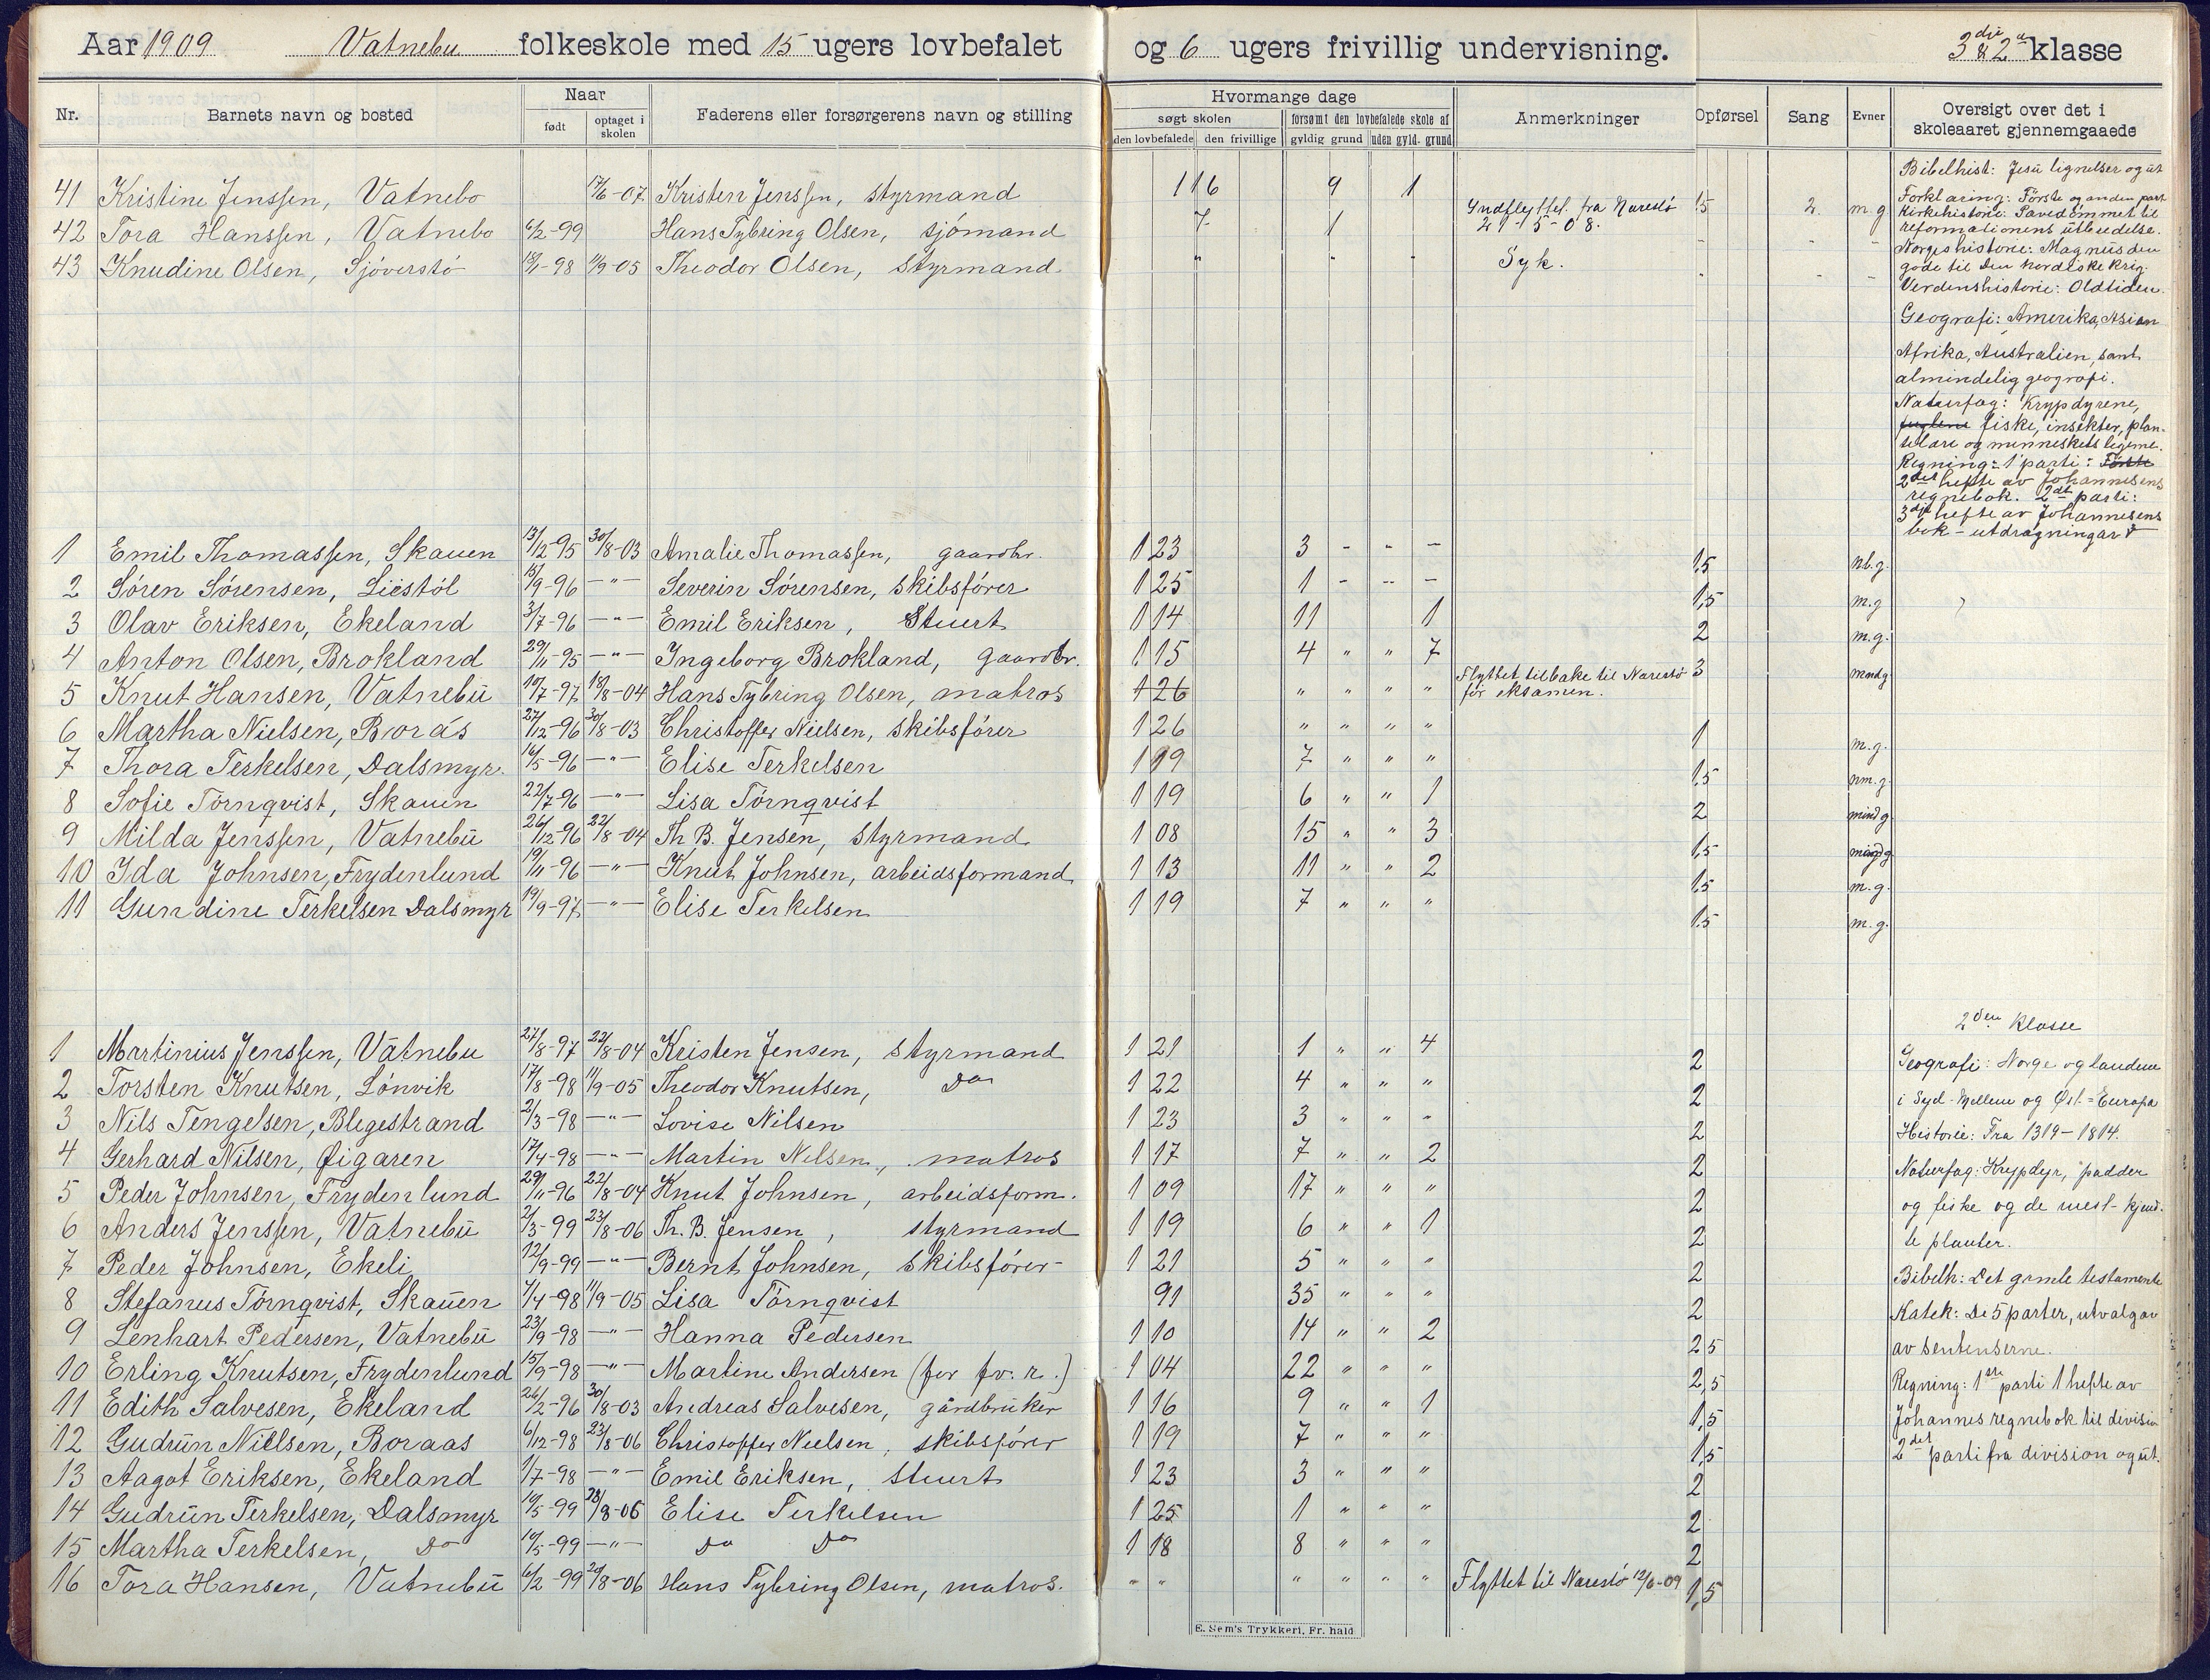 Aar 1909 Vatnebu folkeskole med 15 ugers lovbefalet og 6 ugers frivillig undervisning. 3die & 2a klasse
Nr. Barnets navn og bosted Naar født optaget i skolen Faderens eller forsørgerens navn og stilling Hvormange dage søgt skolen den lovbefalede den frivillige forsømt den lovbefalede skole af gyldig grund uden gyld. grund Anmerkninger Opførsel Sang Evner Oversigt over det i skoleaaret gjennemgaaede
41 Kristine Jenssen, Vatnebo 17/6-07 Kristen Jenssen, styrmand 116 9 1 1,5 2 m.g
42 Tora Hanssen, Vatnebo 6/2-99 Hans Tybring Olsen, sjømand 7 1 Indflyttet fra Narestø 21-5-08. - - -
43 Knudine Olsen, Sjøverstø 18/1-98 11/9-05 Theodor Olsen, styrmand " " " Syk. - - -
Bibelhist: Jesu lignelser og ut
Forklaring: Første og anden part
Kirkehistorie: Pavedømmet til
reformationens utbredelse.
Norgeshistorie: Magnus den
gode til Den nordiske krig.
Verdenshistorie: Oldtiden.
Geografi: Amerika, Asien
Afrika, Australien, samt
almindelig geografi.
Naturfag: Krypdyrene,
fuglene fiske, insekter, plan-
telære og menneskets legeme.
Regning: 1 parti: Første
2det hefte av Johannesens
regnebok. 2det parti:
3dje hefte av Johannesens
bok - utdragninger
1 Emil Thomassen, Skauen 13/12-95 30/8-03 Amalie Thomassen, gaardbr. 123 3 - - - 1,5 m.g.
2 Søren Sørensen, Liestøl 15/9-96 -"- Severin Sørensen, skibsfører 125 1 - - - 1,5 m.g
3 Olav Eriksen, Ekeland 3/7-96 -"- Emil Eriksen, Stuert 114 11 1 2 m.g.
4 Anton Olsen, Brokland 29/11-95 -"- Ingeborg Brokland, Gaardbr. 115 4 " " 7 3 mndg
5 Knut Hansen, Vatnebu 10/7-97 18/8-04 Hans Tybring Olsen, matros 126 " " " " Flyttet tilbake til Narestø før eksamen.
6 Martha Nielsen, Borås 27/12-96 30/8-03 Christoffer Nielsen, skibsfører 126 " " " " 1 m.g.
7 Thora Terkelsen, Dalsmyr. 16/5-96 -"- Elise Terkelsen 119 7 " " " 1,5 m.g.
8 Sofie Törnqvist, Skauen 22/7-96 -"- Lisa Törnqvist 119 6 " " 1 2 mindg
9 Milda Jenssen, Vatnebu 26/12-96 22/8-04 Th B. Jensen, styrmand 108 15 " " 3 1,5
10 Ida Johnsen, Frydenlund 19/11-96 -"- Knut Johnsen, arbeidsformand 113 11 " " 2 1,5 m.g.
11 Gundine Terkelsen Dalsmyr 19/9-97 -"- Elise Terkelsen 119 7 " " " 1,5 m.g.
1 Martinius Jenssen, Vatnebu 27/8-97 22/8-04 Kristen Jensen, styrmand 121 1 " " 4 2
2 Torsten Knutsen, Lønvik 17/8-98 11/9-05 Theodor Knutsen, Do 122 4 " " " 2
3 Nils Tengelsen, Blegestrand 2/3-98 -"- Lovise Nilsen 123 3 " " " 2
4 Gerhard Nilsen, Øigaren 17/4-98 -"- Martin Nilsen, matros 117 7 " " 2 2
5 Peder Johnsen, Frydenlund 29/11-96 22/8-04 Knut Johnsen, arbeidsform. 109 17 " " " 2
6 Anders Jenssen, Vatnebu 2/3-99 23/8-06 Th. B. Jensen, styrmand 119 6 " " 1 2
7 Peder Johnsen, Ekeli 12/9-99 -"- Bernt Johnsen, skibsfører 121 5 " " " 2
8 Stefanus Törnqvist, Skauen 7/4-98 11/9-05 Lisa Törnqvist 91 35 " " " 2
9 Lenhart Pedersen, Vatnebu 23/9-98 -"- Hanna Pedersen 110 14 " " 2 2,5
10 Erling Knutsen, Frydenlund 15/9-98 -"- Martine Andersen (for fv. r.) 104 22 " " " 2,5
11 Edith Salvesen, Ekeland 26/2-96 30/8-03 Andreas Salvesen, gårdbruker 116 9 " " 1 1,5
12 Gudrun Nielsen, Boraas 6/12-98 23/8-06 Christoffer Nielsen, skibsfører 119 7 " " " 1,5
13 Aagot Eriksen, Ekeland 1/7-98 -"- Emil Eriksen, stuert 123 3 " " " 2
14 Gudrun Terkelsen, Dalsmyr 10/5-99 23/8-06 Elise Terkelsen 125 1 " " " 2
15 Martha Terkelsen, Do 10/5-99 -"- Do Do 118 8 " " " 2
16 Tora Hansen, Vatnebu 6/2-99 20/8-06 Hans Tybring Olsen, matros. " " " " " " Flyttet til Narestø 12/6-09 1,5
2den klasse
Geografi: Norge og landene
i Syd-Mellem og Øst-Europa
Historie: Fra 1319-1814.
Naturfag: Krypdyr, padder
og fiske og de mest kjend-
te planter.
Bibelh: Det gamle testamente
Katek: De 5 parter, utvalg av
av sentenserne.
Regning: 1ste parti 1 hefte av
Johannes regnebok til division
2det parti fra division og ut.
E. Sem's Trykkeri, Fr. hald